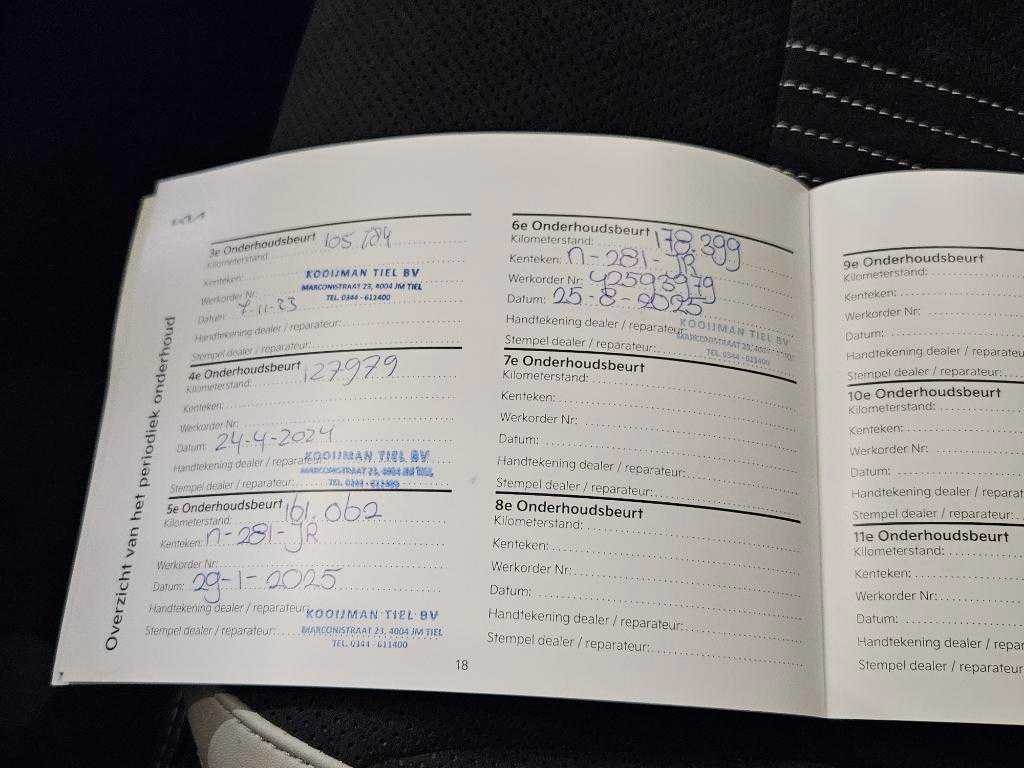 Overzicht van het periodiek onderhoud
3e Onderhoudsbeurt
Kilometerstand: 105
Kenteken:
KOOIJMAN TIEL BV
Werkorder Nr:
MARCONISTRAAT 23, 4004 JM TIEL
TEL. 0344 - 611400
Datum: 7-11-23
Handtekening dealer / reparateur:
Stempel dealer / reparateur:
4e Onderhoudsbeurt
Kilometerstand: 127979
Kenteken:
Werkorder Nr:
Datum: 24-4-2024
Handtekening dealer / reparateur:
KOOIJMAN TIEL BV
MARCONISTRAAT 23, 4004 JM TIEL
Stempel dealer / reparateur:
TEL. 0344 - 611400
5e Onderhoudsbeurt
Kilometerstand: 161.062
Kenteken: n-281-JR
Werkorder Nr:
Datum: 29-1-2025
Handtekening dealer / reparateur:
KOOIJMAN TIEL BV
Stempel dealer / reparateur:
MARCONISTRAAT 23, 4004 JM TIEL
TEL. 0344 - 611400
18
6e Onderhoudsbeurt
Kilometerstand: 178.399
Kenteken: n-281-JR
Werkorder Nr: 42593979
Datum: 25-8-2025
Handtekening dealer / reparateur:
KOOIJMAN TIEL BV
MARCONISTRAAT 23, 4004
Stempel dealer / reparateur:
TEL. 0344 - 611400
7e Onderhoudsbeurt
Kilometerstand:
Kenteken:
Werkorder Nr:
Datum:
Handtekening dealer / reparateur:
Stempel dealer / reparateur:
8e Onderhoudsbeurt
Kilometerstand:
Kenteken:
Werkorder Nr:
Datum:
Handtekening dealer / reparateur:
Stempel dealer / reparateur:
9e Onderhoudsbeurt
Kilometerstand:
Kenteken:
Werkorder Nr:
Datum:
Handtekening dealer / reparateu
Stempel dealer / reparateur:
10e Onderhoudsbeurt
Kilometerstand:
Kenteken:
Werkorder Nr:
Datum:
Handtekening dealer / reparat
Stempel dealer / reparateur:
11e Onderhoudsbeurt
Kilometerstand:
Kenteken:
Werkorder Nr:
Datum:
Handtekening dealer / repa
Stempel dealer / reparateur